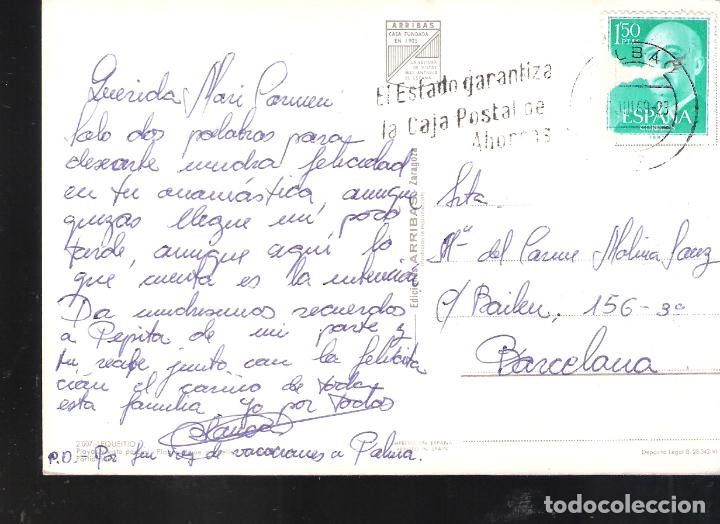 ARRIBAS
CASA FUNDADA
EN 1905
El Estado garantiza
la Caja Postal de
Ahorros
1'50
PTAS
ESPAÑA
Querida Mari Carmen:
Solo dos palabras para
desearte mucha felicidad
en tu onomástica, aunque
quizas llegue un poco
tarde, aunque aquí lo
que cuenta es la intención
Da muchisimos recuerdos
a Pepita de mi parte y
tu recibe junto con la felicita
ción el cariño de toda
esta familia. Yo por todos
P.D. - Por fin voy de vacaciones a Palma.
Srta
Mª del Carme Molina Sanz
c/ Bailen, 156-3º
Barcelona
Ediciones ARRIBAS Zaragoza
2.007 LEQUEITIO
Depósito Legal B. 28.342-VI
todocoleccion.net